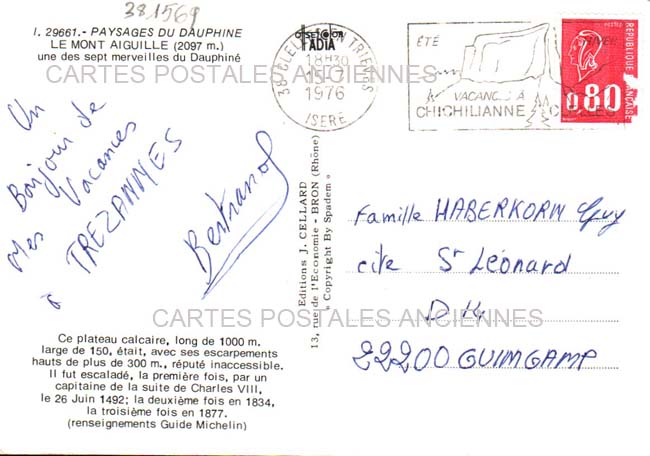 381569
I. 29661.- PAYSAGES DU DAUPHINE
LE MONT AIGUILLE (2097 m.)
une des sept merveilles du Dauphiné
CARTES POSTALES ANCIENNES
Un
Bonjour de
Mes Vacances
à TREZANNES
Bertrand
Ce plateau calcaire, long de 1000 m.
large de 150, était, avec ses escarpements
hauts de plus de 300 m., réputé inaccessible.
Il fut escaladé, la première fois, par un
capitaine de la suite de Charles VIII,
le 26 Juin 1492; la deuxième fois en 1834,
la troisième fois en 1877.
(renseignements Guide Michelin)
Editions J. CELLARD
13, rue de l'Economie - BRON (Rhône)
« Copyright By Spadem »
ADIA
38 CLELLES EN TRIEVES
18H30
1976
ISERE
ÉTÉ
VACANCES A
CHICHILIANNE
REPUBLIQUE FRANÇAISE
0.80
Famille HABERKORN Guy
cite St Léonard
D 14
22200 GUIMGAMP
CARTES POSTALES ANCIENNES